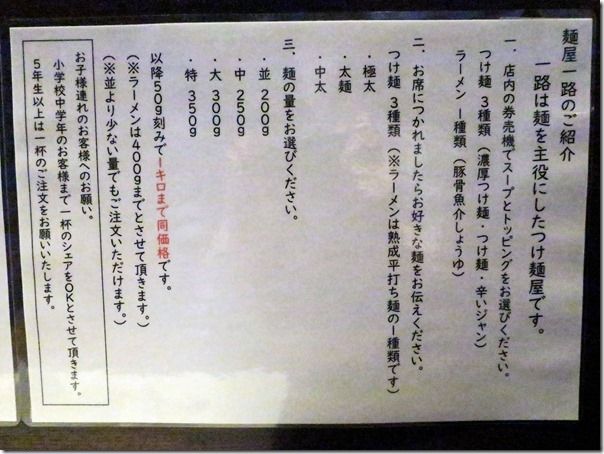 麺屋一路のご紹介
一路は麺を主役にしたつけ麺屋です。
一、店内の券売機でスープとトッピングをお選びください。
つけ麺 3種類（濃厚つけ麺・つけ麺・辛いジャン）
ラーメン 1種類（豚骨魚介しょうゆ）
二、お席につかれましたらお好きな麺をお伝えください。
つけ麺 3種類（※ラーメンは熟成平打ち麺の1種類です）
・極太
・太麺
・中太
三、麺の量をお選びください。
・並 200g
・中 250g
・大 300g
・特 350g
以降50g刻みで1キロまで同価格です。
（※ラーメンは400gまでとさせて頂きます。）
（※並より少ない量でもご注文いただけます。）
お子様連れのお客様へのお願い。
小学校中学年のお客様まで一杯のシェアをOKとさせて頂きます。
5年生以上は一杯のご注文をお願いいたします。